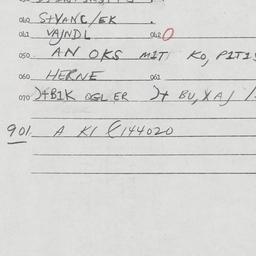 040 S+VANC/EK .
041 VAJNDL 042 O
050 AN OKS MIT KO, PIT I
060 HERNE 061
070 )+BIK OGL ER )+ BU, XAJ /
901. A KI €144020